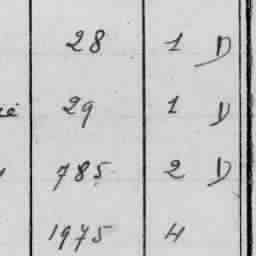 28 1 D
29 1 D
785 2 D
1975 4